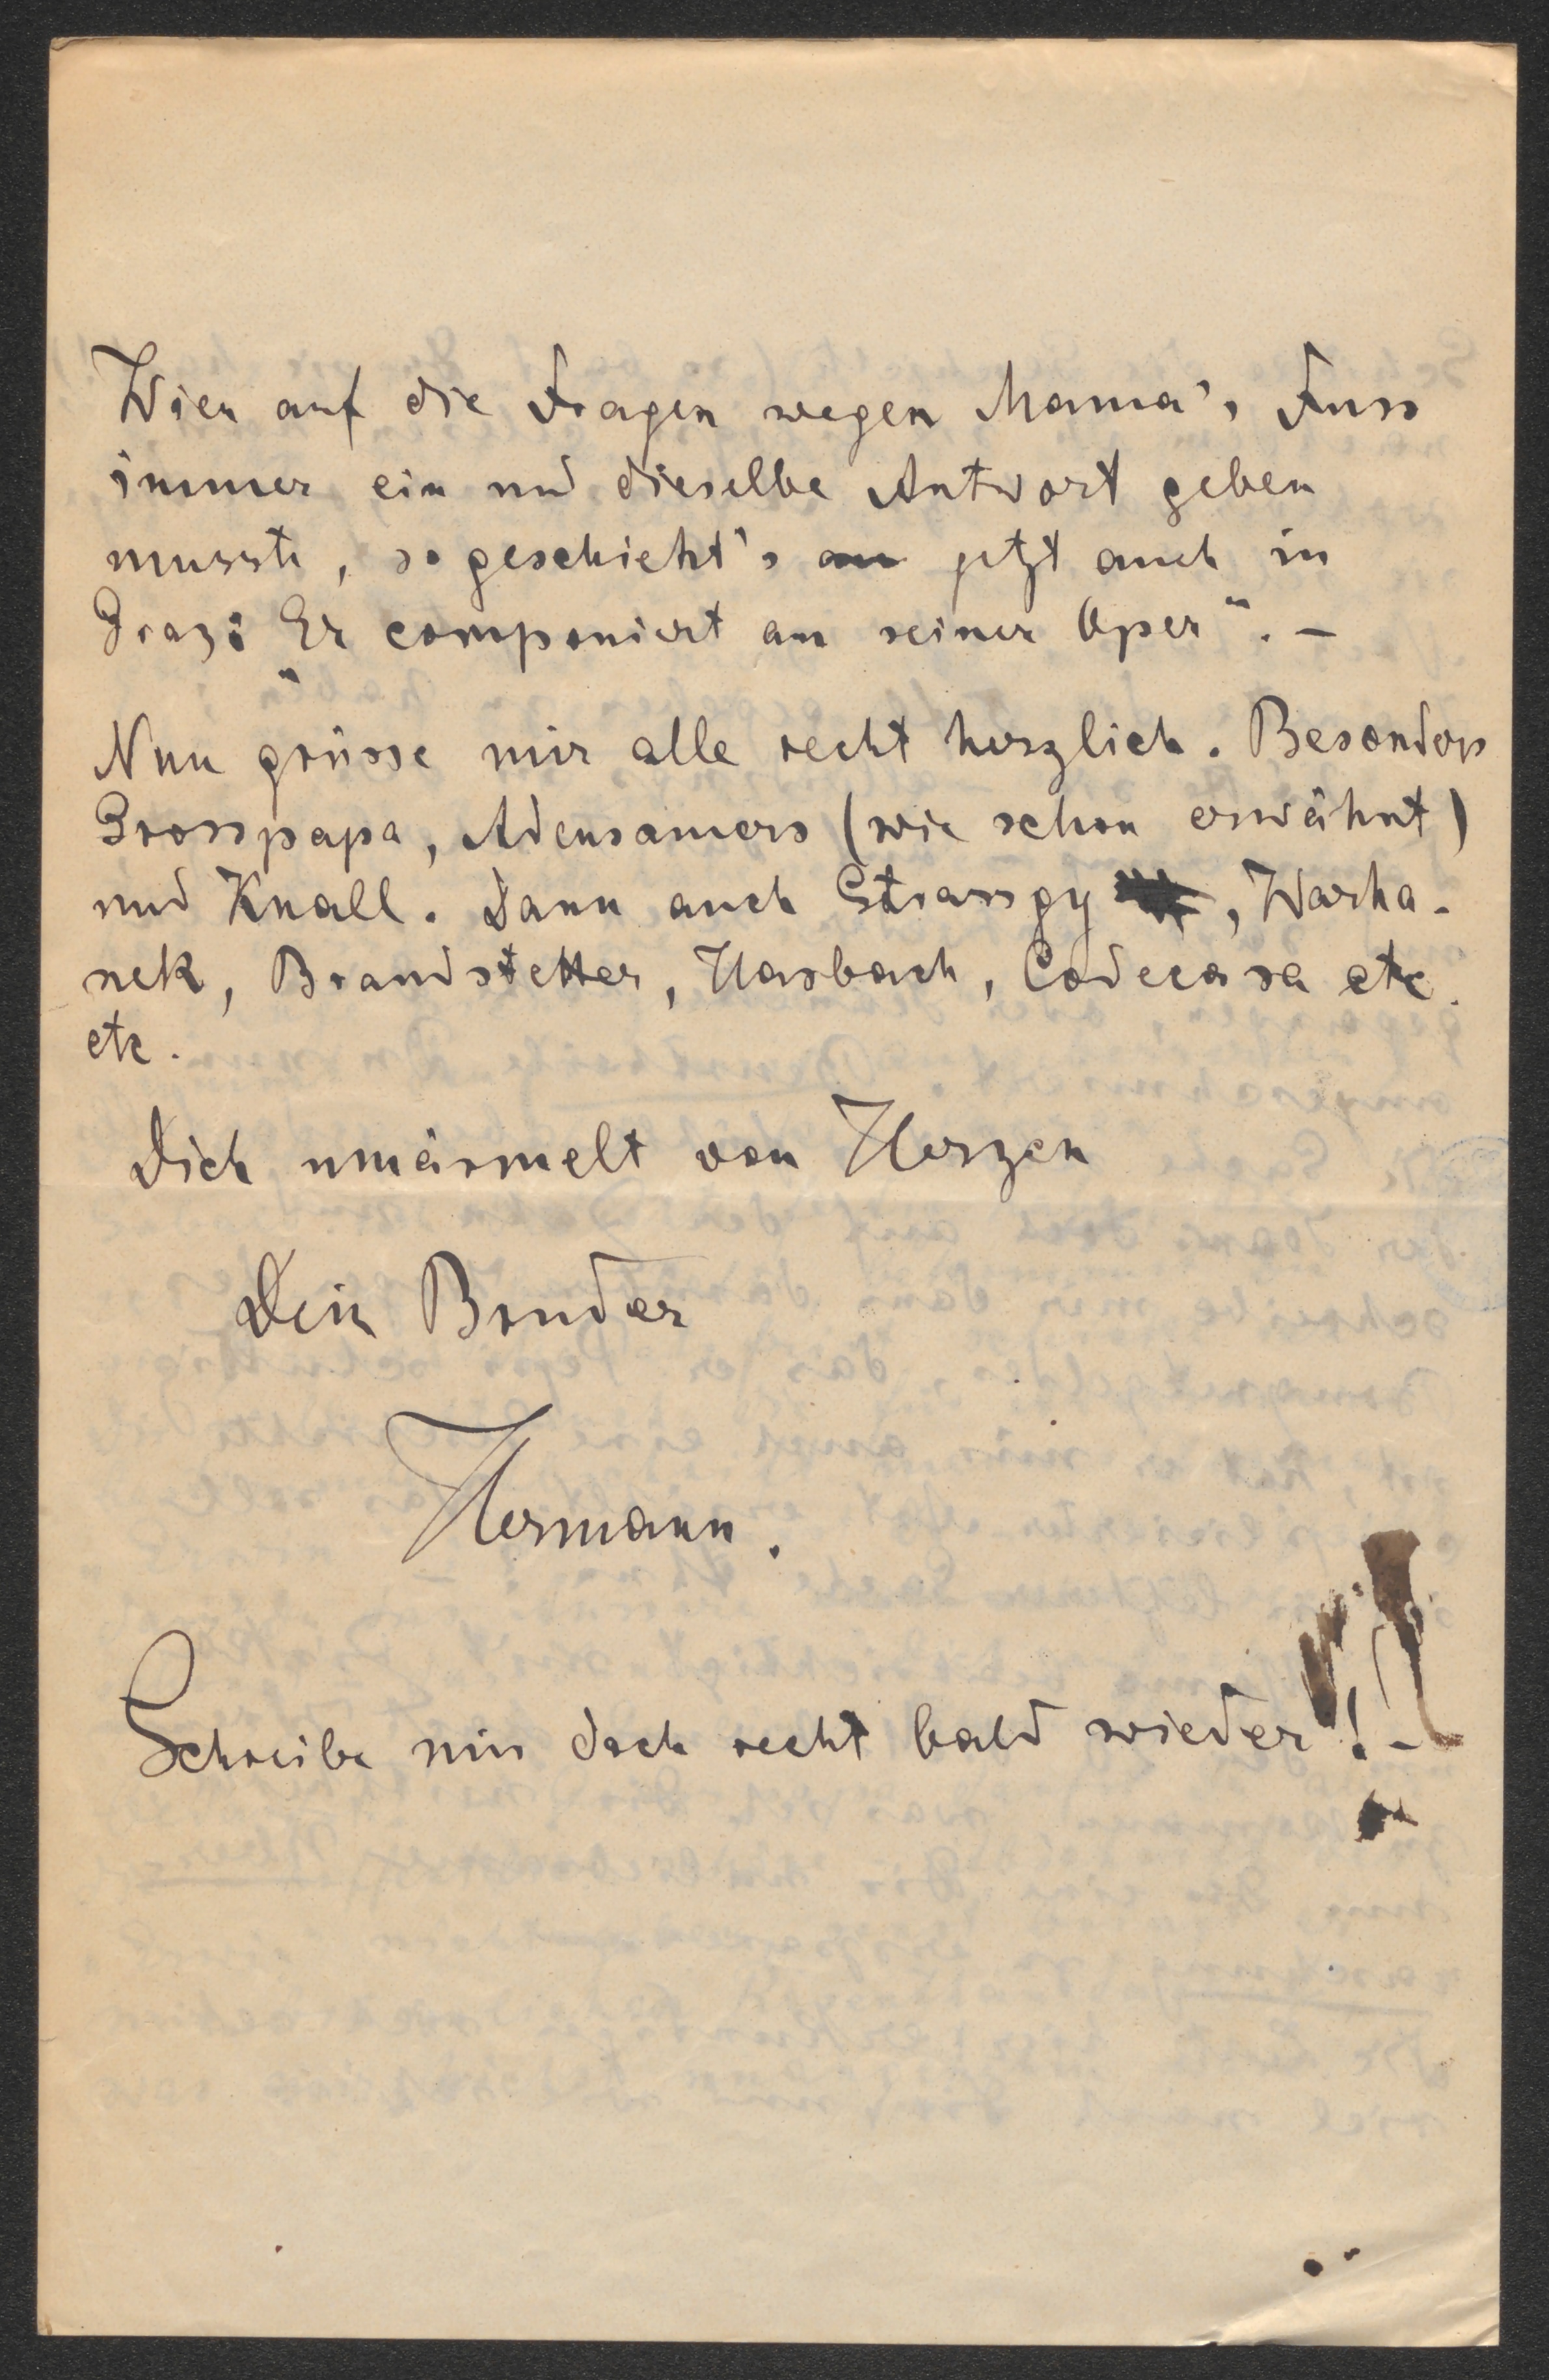 Wien auf die Fragen wegen Mama's Fuss
immer ein und dieselbe Antwort geben
musste, so geschieht's an jetzt auch in
Graz: „Er componiert an seiner Oper“. —
Nun grüsse mir alle recht herzlich. Besonders
Grosspapa, Adensamers (wie schon erwähnt)
und Knall. Dann auch Strassgy, Warha-
nek, Brandstetter, Hasbach, Codecasa etc.
etc.
Dich umärmelt von Herzen
Dein Bruder
Hermann.
Schreibe mir doch recht bald wieder! –